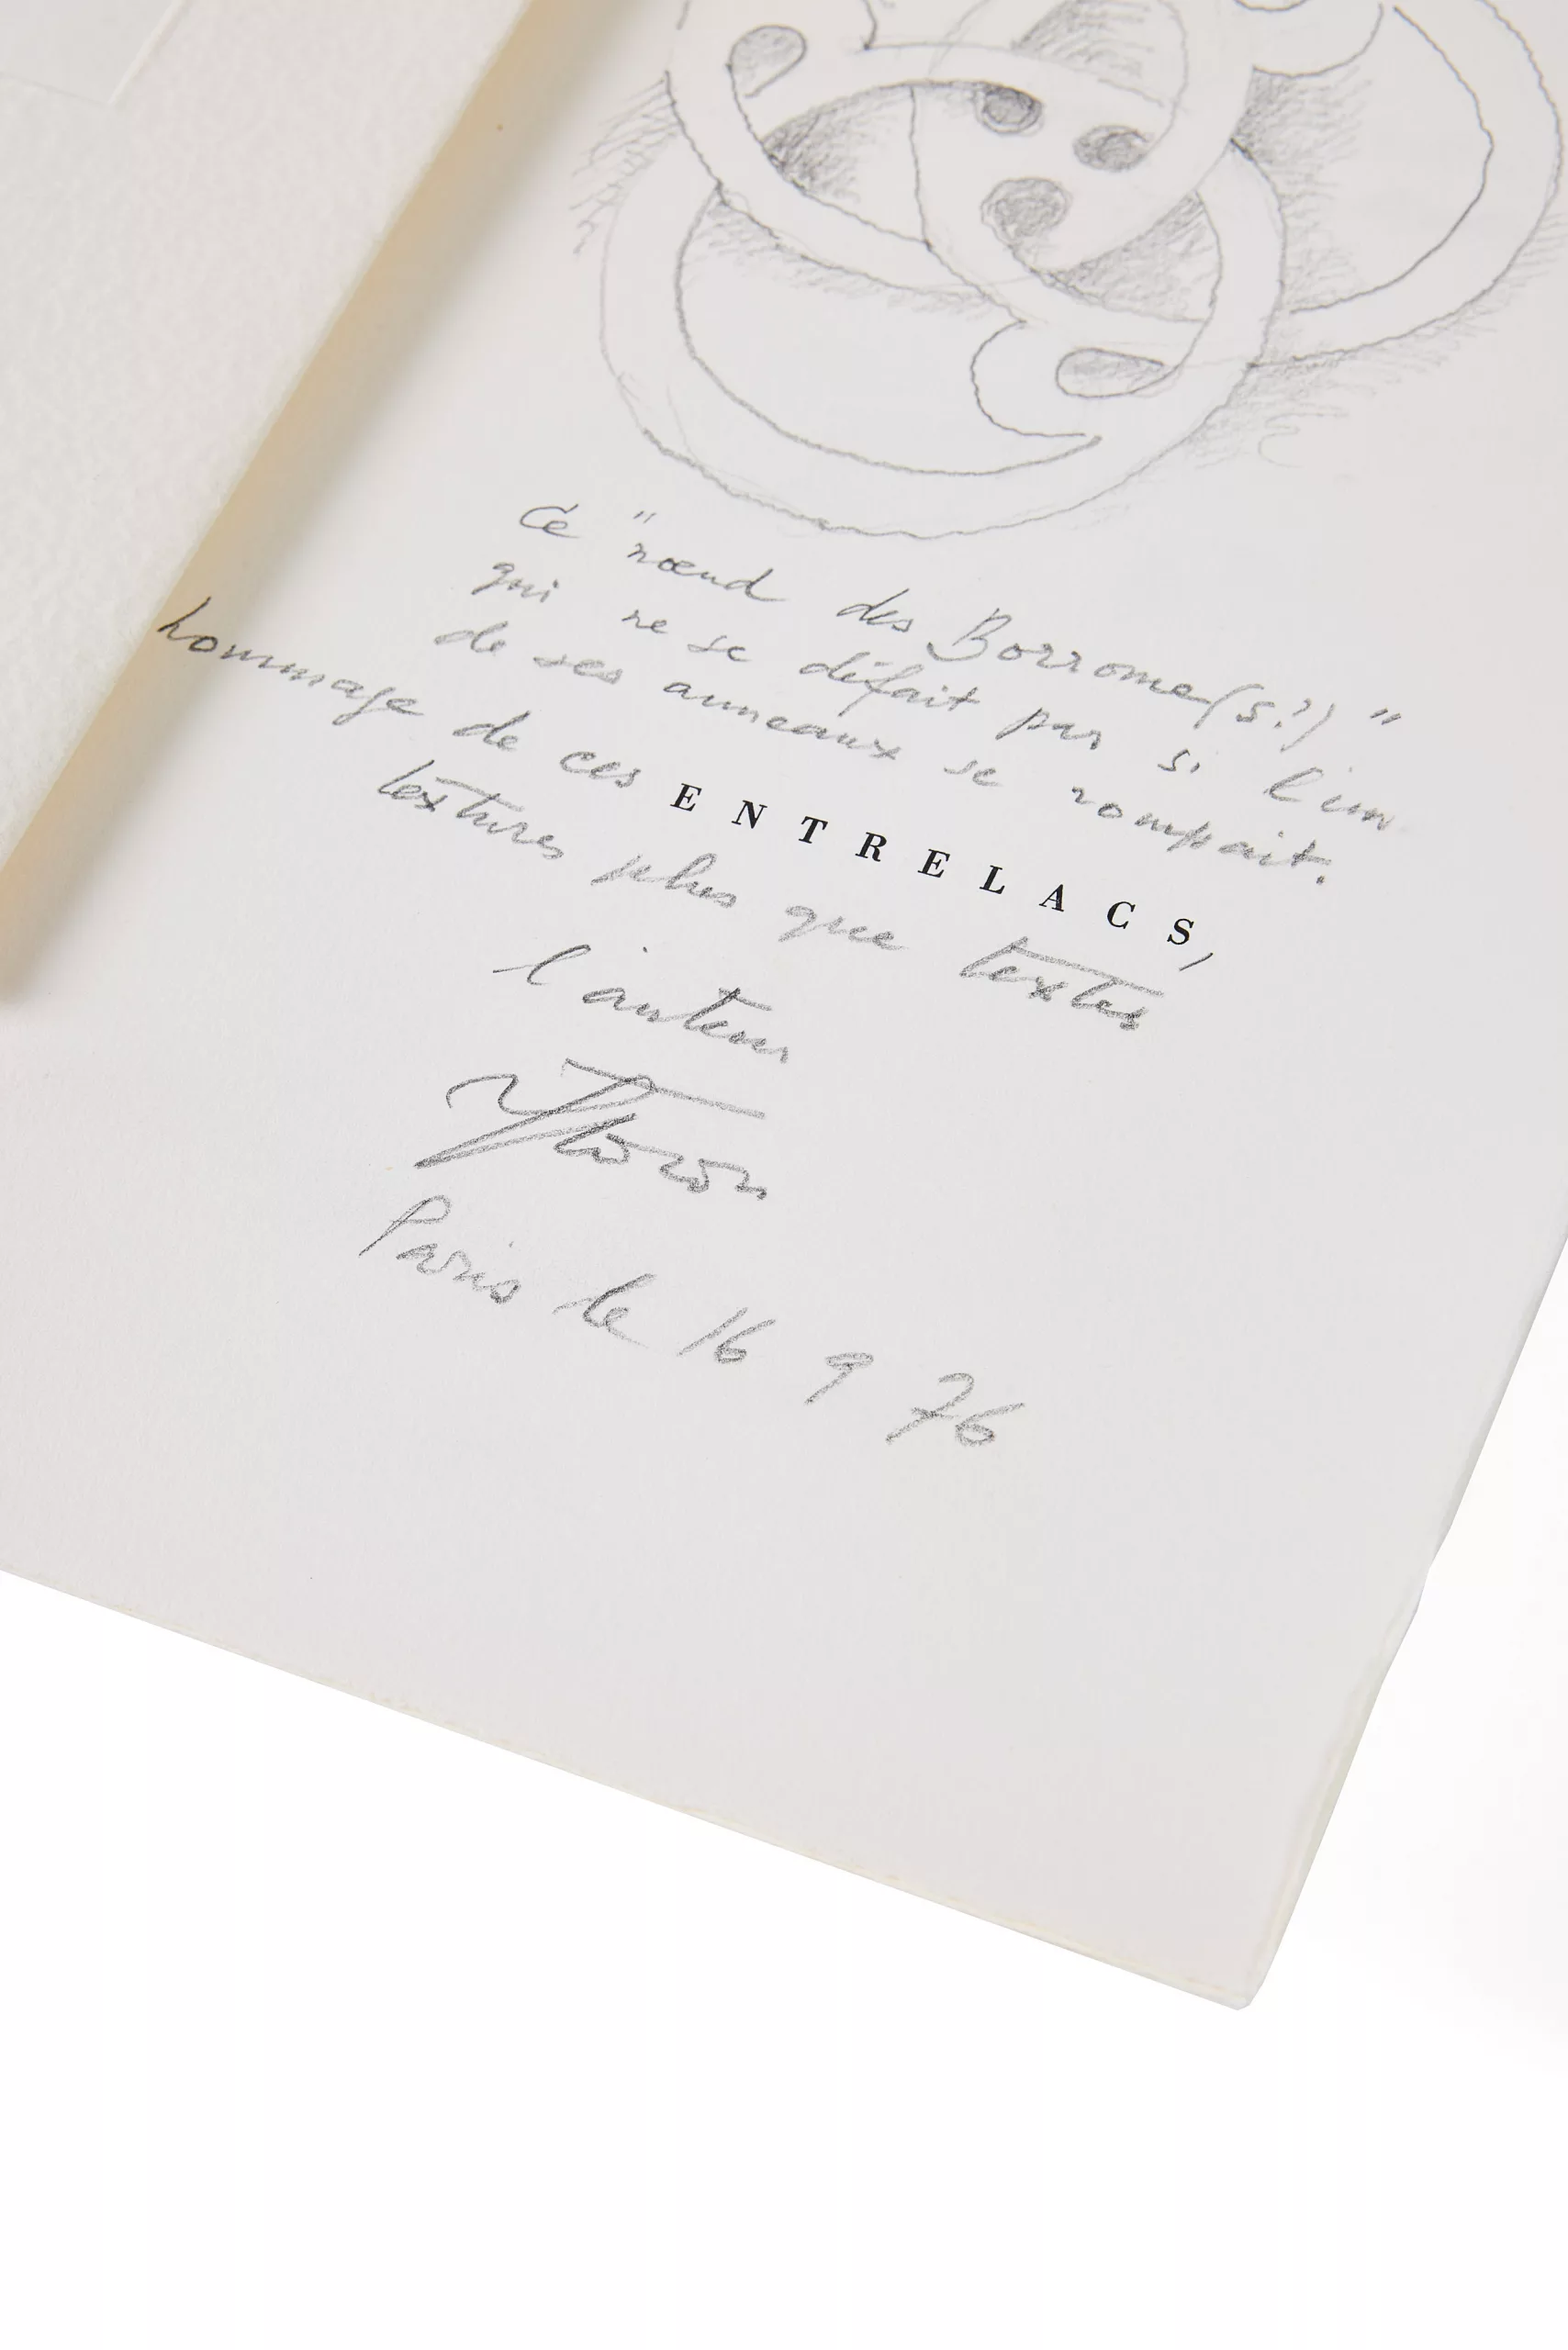 Ce "nœud des Borrome(s?)"
qui ne se défait pas si l'un
de ses anneaux se rompait.
hommage de ces ENTRELACS,
textures plus que textes
l'auteur
Paris le 16 9 76